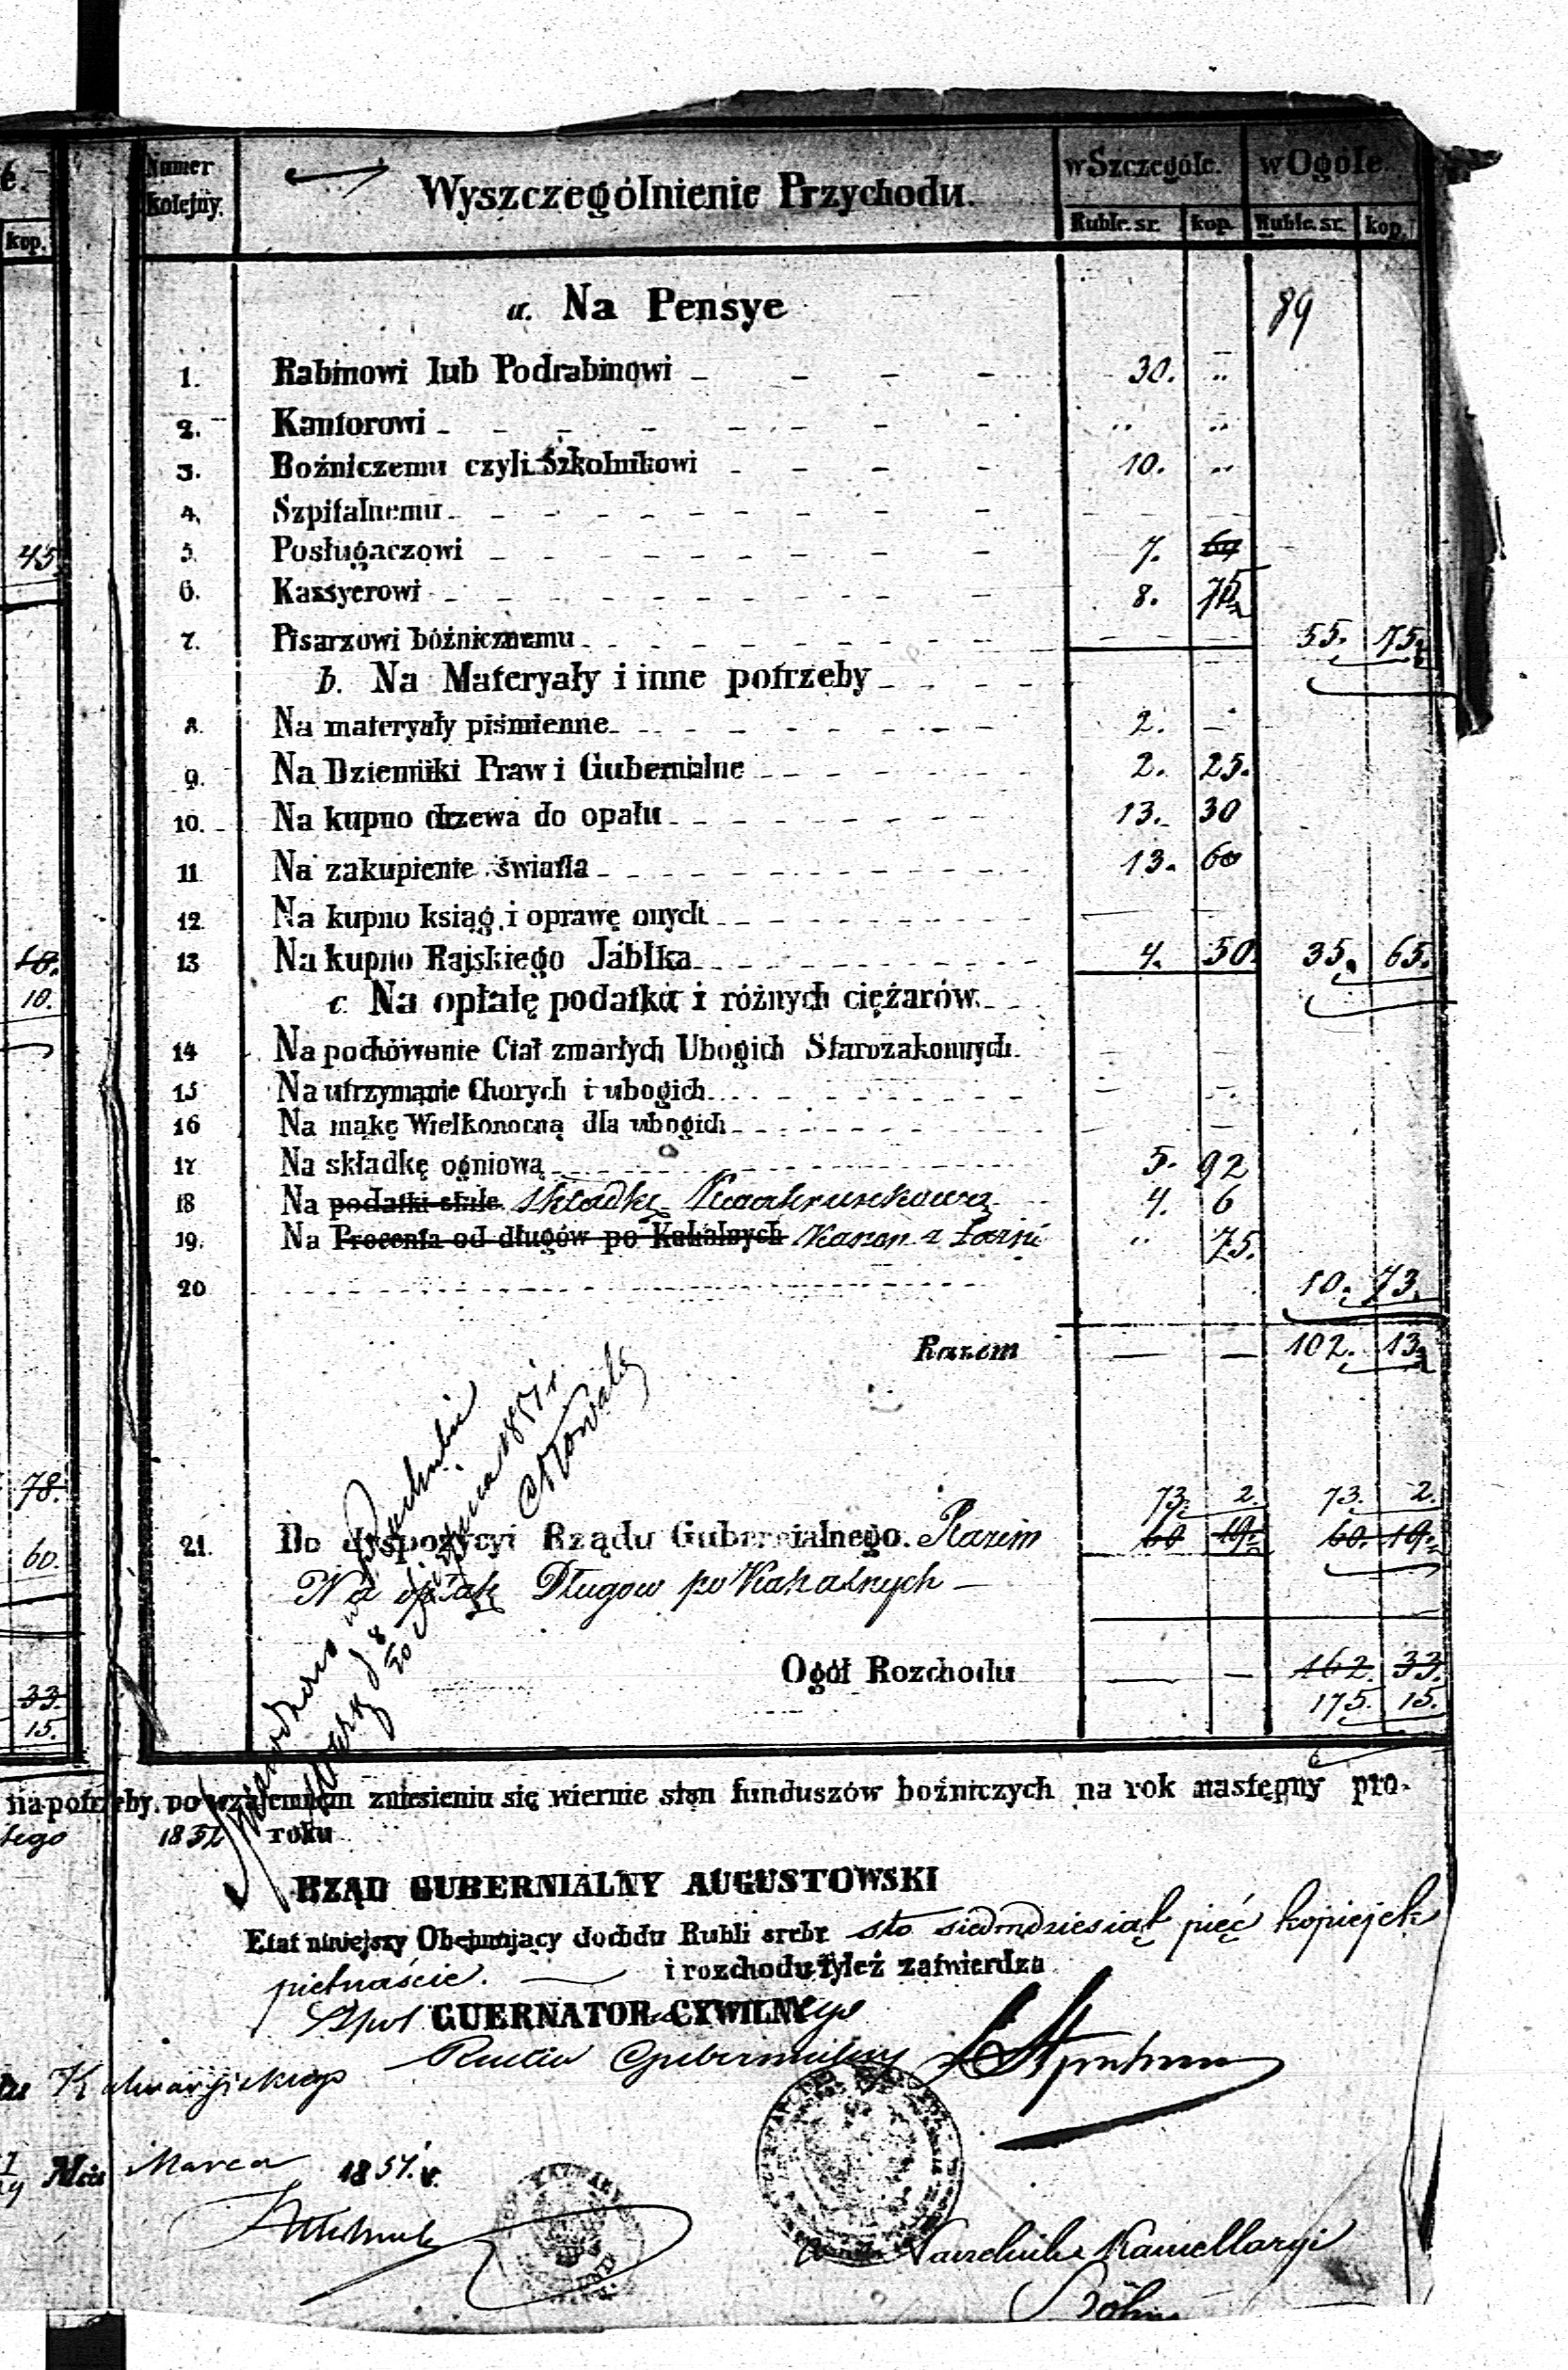 Numer kolejny. Wyszczególnienie Przychodu. w Szczególe. w Ogóle
kop. Ruble. sr. kop. Ruble. sr. kop.
a. Na Pensye 89
1. Rabinowi lub Podrabinowi 30. „
2. Kantorowi „ „
3. Boźniczemu czyli Szkolnikowi 10. „
4. Szpitalnemu
45. 5. Posługaczowi 7.
6. Kassyerowi 8. 75
7. Pisarzowi bóźnicznemu 55. 75
b. Na Materyały i inne potrzeby
8. Na materyały piśmienne 2. —
9. Na Dzienniki Praw i Gubernialne 2. 25.
10. Na kupno drzewa do opału 13. 30
11 Na zakupienie światła 13. 60
12 Na kupno ksiąg i oprawę onych
10. 13 Na kupno Rajskiego Jabłka 4. 50. 35. 65.
c. Na opłatę podatku i różnych ciężarów.
14 Na pochówanie Ciał zmarłych Ubogich Starozakonnych
15 Na utrzymanie Chorych i ubogich
16 Na mąkę Wielkonocną dla ubogich
17 Na składkę ogniową 5. 92
18 Na podatki stałe składkę 4. 6
19. Na Procenta od długów po Kahalnych Kanon z Łaźni „ 75.
20 10. 73.
Razem — — 102. 13
78. 73. 2. 73. 2.
60. 21. Do dyspozycyi Rządu Gubernialnego. Razem 60 19 60. 19.
Na opłatę Długow po Kahalnych —
33. Ogół Rozchodu — — 162. 33.
15. 175. 15.
na potrzeby, po wzajemnem zniesieniu się wiernie stan funduszów boźniczych na rok następny pro-
tego 1851 roku
RZĄD GUBERNIALNY AUGUSTOWSKI
Etat niniejszy Obejmujący dochdu Rubli srebr sto siedmdziesiąt pięć kopiejek
pietnaście. — i rozchodu tyleż zatwierdza
GUERNATOR CYWILNY
Radca Gubernialny
Kalwaryjskiego
Mca Marca 1851. r.
Naczelnik Kancellaryi
Böhm